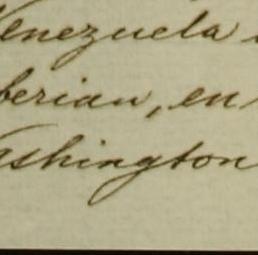 Venezuela
berian, en
ashington